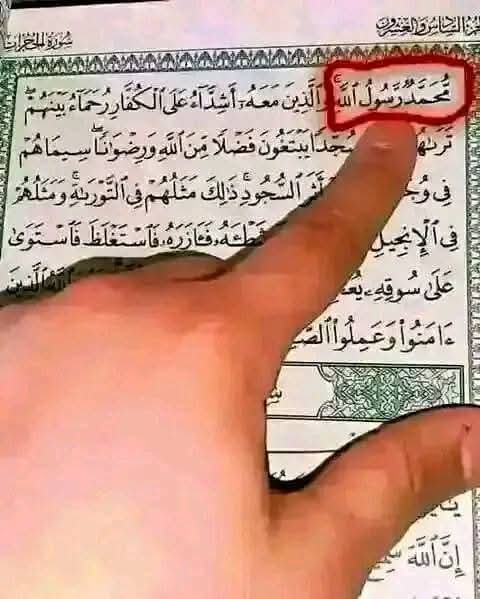 الجزء السادس والعشرون
سورة الحجرات
مُّحَمَّدٌ رَّسُولُ ٱللَّهِۚ وَٱلَّذِينَ مَعَهُۥٓ أَشِدَّآءُ عَلَى ٱلْكُفَّارِ رُحَمَآءُ بَيْنَهُمْۖ
سُجَّدًا يَبْتَغُونَ فَضْلًا مِّنَ ٱللَّهِ وَرِضْوَٰنًاۖ سِيمَاهُمْ
فِى أَثَرِ ٱلسُّجُودِۚ ذَٰلِكَ مَثَلُهُمْ فِى ٱلتَّوْرَىٰةِۚ وَمَثَلُهُمْ
فِى ٱلْإِنجِيلِ شَطْـَٔهُۥ فَـَٔازَرَهُۥ فَٱسْتَغْلَظَ فَٱسْتَوَىٰ
عَلَىٰ سُوقِهِۦ ٱللَّهُ ٱلَّذِينَ
ءَامَنُوا۟ وَعَمِلُوا۟
إِنَّ ٱللَّهَ